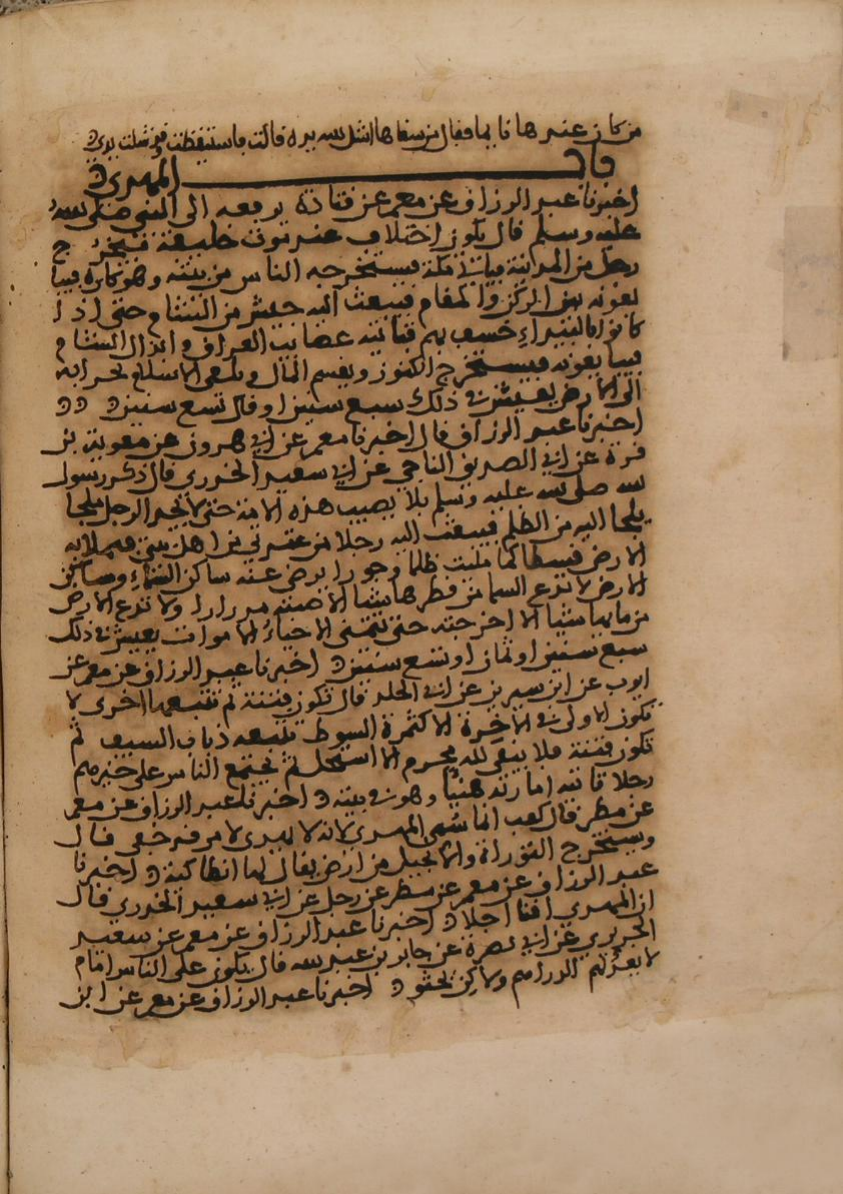 من كان عندها نايما فقال من سقاها اشل الله يده قالت فاستيقظت وقد شلت يدي
باب المهدي
اخبرنا عبد الرزاق عن معمر عن قتادة يرفعه الى النبي صلى الله
عليه وسلم قال يكون اختلاف عند موت خليفة فيخرج
رجل من المدينة فياتي مكة فيستخرجه الناس من بيته وهو كاره فيبا
يعونه بين الركن والمقام فيبعث اليه جيش من الشام حتى اذا
كانوا بالبيداء خسف بهم فتاتيه عصايب العراق وابدال الشام
فيبايعونه فيستخرج الكنوز ويقسم المال ويلقي الاسلام بجرانه
الى الارض يعيش في ذلك سبع سنين او قال تسع سنين
اخبرنا عبد الرزاق قال اخبرنا معمر عن ابي هرون عن معوية بن
قرة عن ابي الصديق الناجي عن ابي سعيد الخدري قال ذكر رسول
الله صلى الله عليه وسلم بلا يصيب هذه الامة حتى لا يجد الرجل ملجا
يلجا اليه من الظلم فيبعث الله رجلا من عترتي من اهل بيتي فيملا به
الارض قسطا كما مليت ظلما وجورا يرضى عنه ساكن السماء وساكن
الارض لا تدع السما من قطرها شيا الا صبته مدرارا ولا تدع الارض
من مايها شيا الا اخرجته حتى تتمنى الاحياء الاموات يعيش في ذلك
سبع سنين او ثمان او تسع سنين اخبرنا عبد الرزاق عن معمر عن
ايوب عن ابن سيرين عن ابي الجلد قال تكون فتنة ثم تتبعها اخرى لا
تكون الاولى في الاخرة الا كثمرة السوط تتبعه ذباب السيف ثم
تكون فتنة فلا يبقى لله محرم الا استحل ثم يجتمع الناس على خيرهم
رجلا تاتيه امارته هنيا وهو في بيته اخبرنا عبد الرزاق عن معمر
عن مطر قال كعب انما سمي المهدي لانه لا يهدى لامر قد خفي قال
ويستخرج التوراة والانجيل من ارض يقال لها انطاكية اخبرنا
عبد الرزاق عن معمر عن مطر عن رجل عن ابي سعيد الخدري قال
ان المهدي اقنا اجلا اخبرنا عبد الرزاق عن معمر عن سعيد
الجريري عن ابي نضرة عن جابر بن عبد الله قال يكون على الناس امام
لا يعد لهم الدراهم ولاكن يحثو اخبرنا عبد الرزاق عن معمر عن ابن